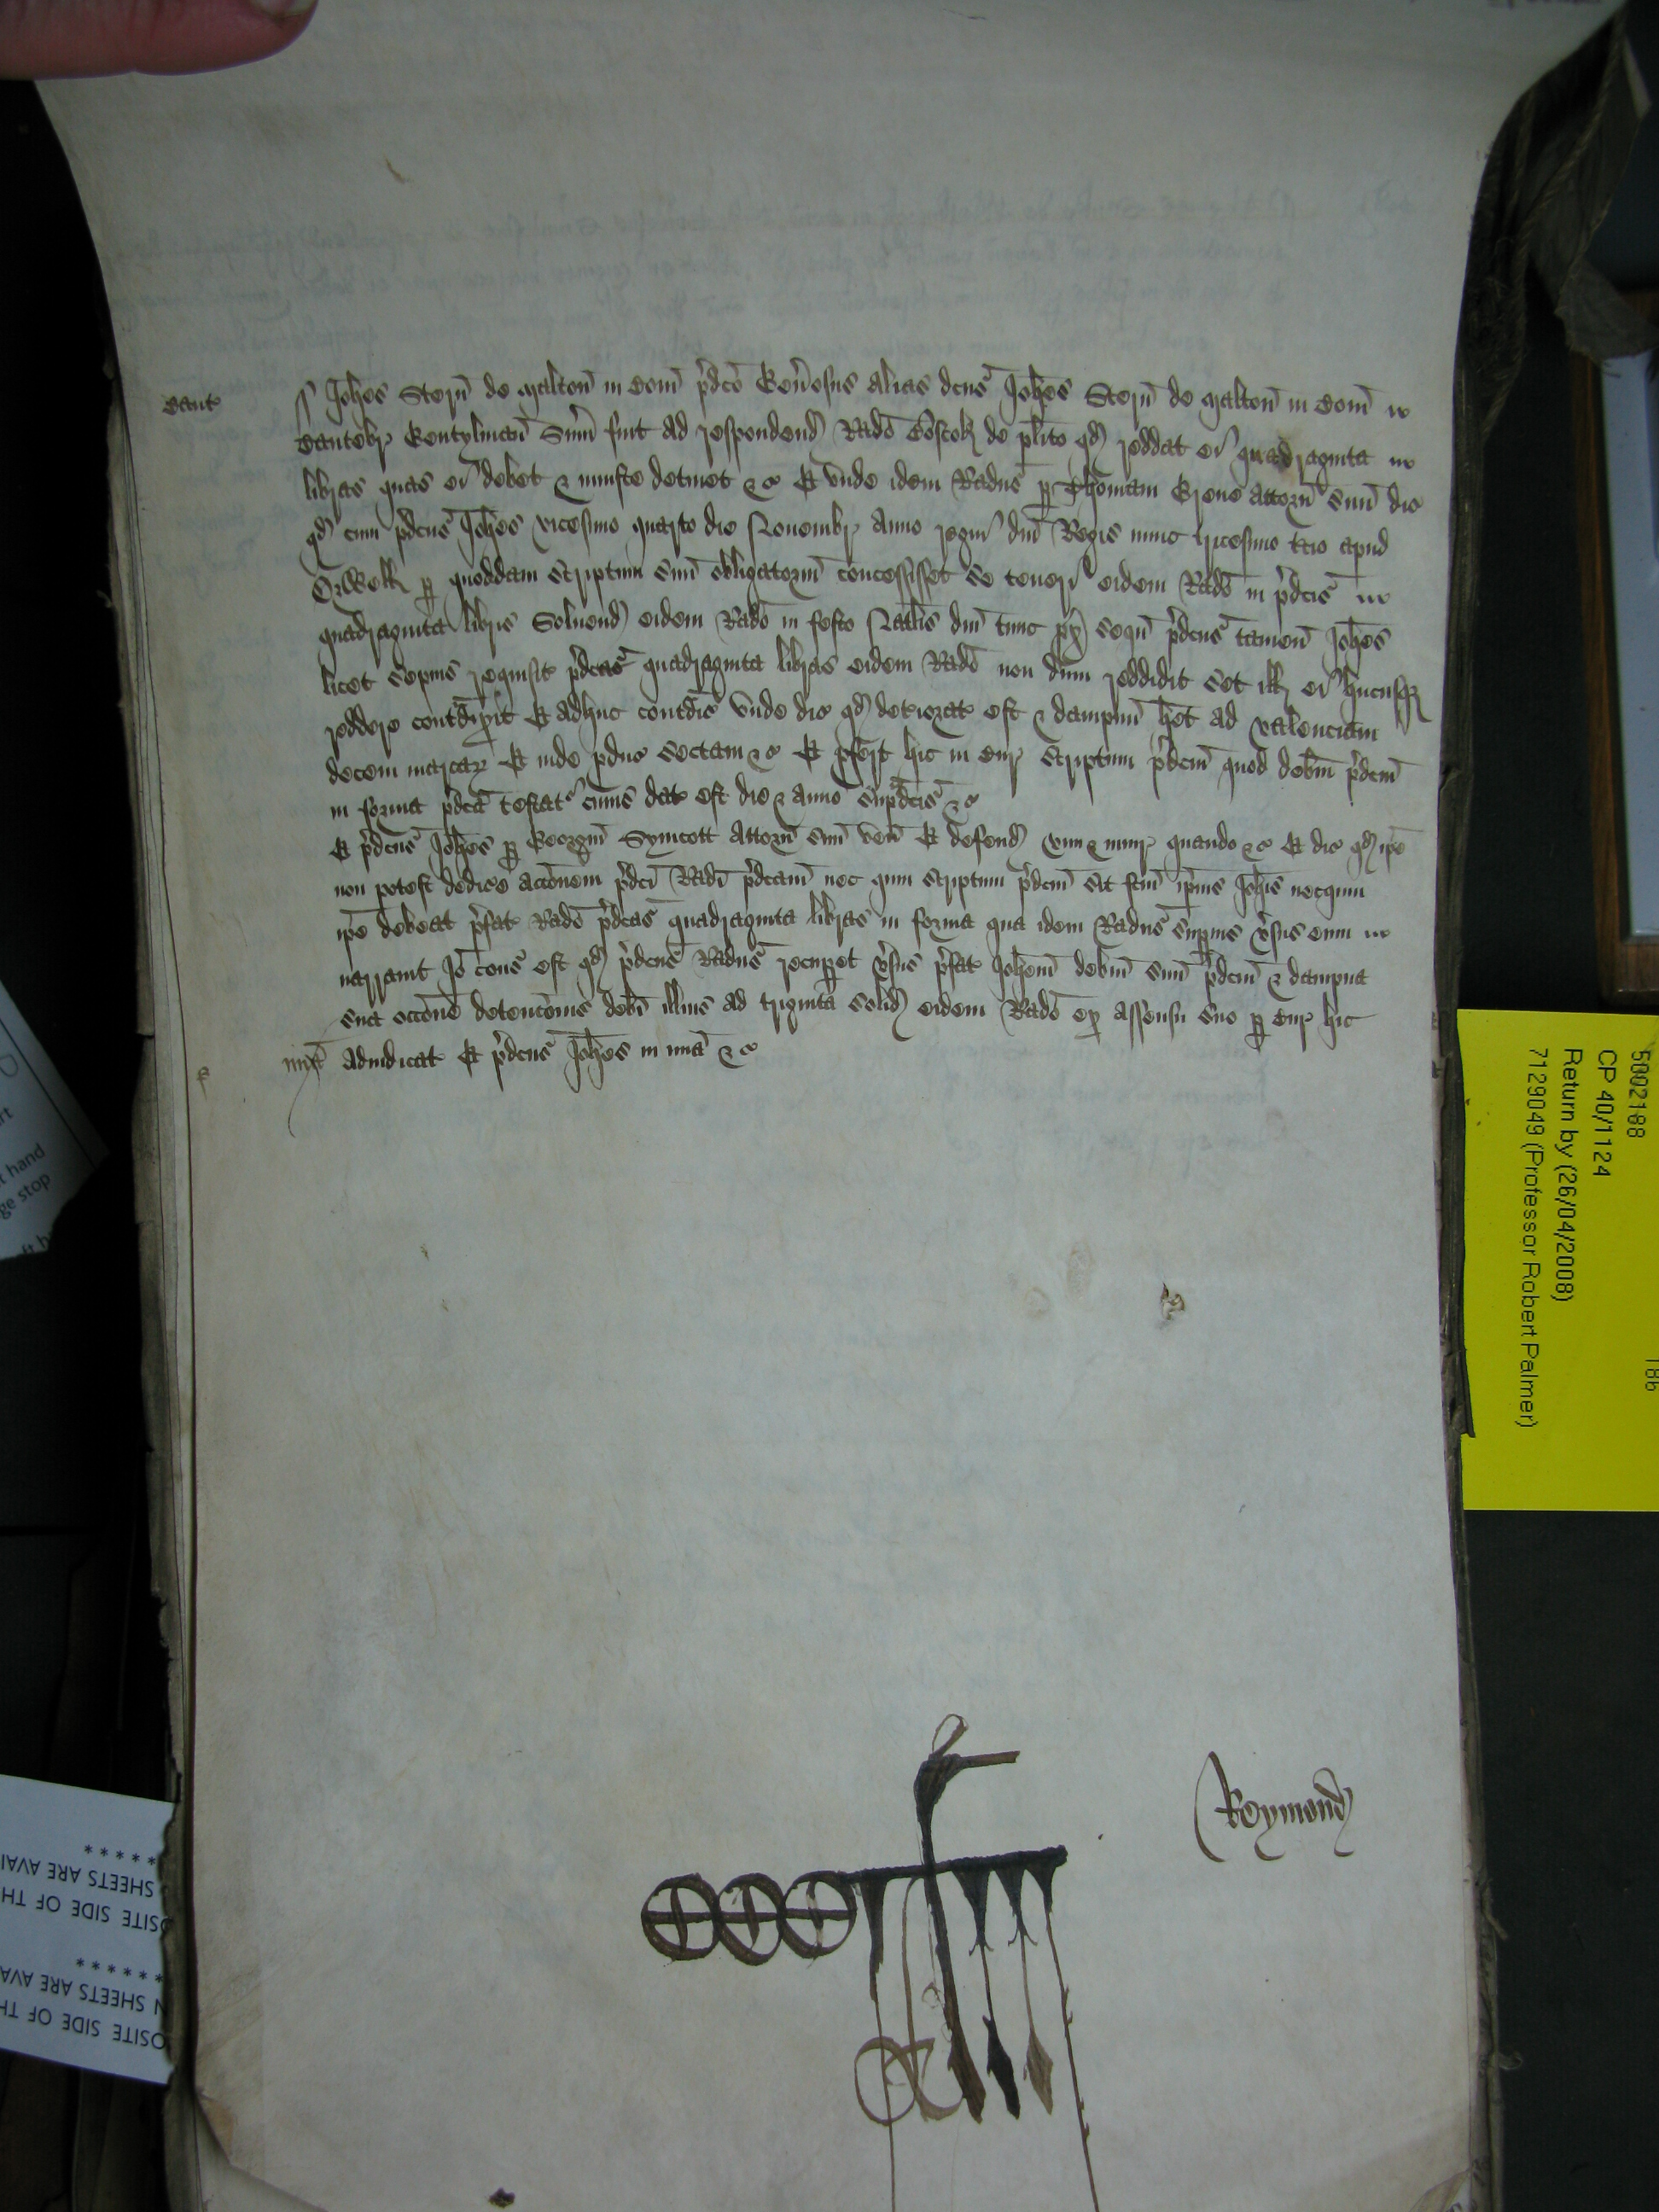 Cant
ss Joħes Stern̄ de Malton̄ in Com̄ p̄dc̄o Gen̄osus alias dc̄us Joħes Stern̄ de Malton̄ in Com̄
Cantebr Gentylman̄ Sum̄ fuit ad respondend Rado de pl̄ito qd reddat ei quadraginta
libras quas ei debet & iniuste detinet &c Et unde idem Radus p Thomam Grene attorn̄ suū dic
qd cum p̄dc̄us Joħes vicesimo quarto die Nouembr anno regni dn̄i Regis nunc tricesimo t̄cio apud
Orwell p quoddam scriptum suū obligatoriū concessisset se teneri eidem Rado in p̄dc̄is
quadraginta libris Soluend eidem Rado in festo Natal̄is dn̄i tunc px sequ p̄dc̄us tamen Joħes
licet sepius requisit p̄dc̄as quadraginta libras eidem Rado non dum reddidit set ill ei hucusq
reddere contradixit Et adhuc contradic unde dic qd deteriorat est & dampnū h̄et ad valenciam
decem marcar Et inde pduc sectam &c Et pfert hic in Cur scriptum p̄dc̄m quod debm̄ p̄dc̄m
in forma p̄dc̄a testat cuius dat est die & anno sup̄dc̄is &c
Et p̄dc̄us Joħes p Georgiū Symcott Attorn̄ suū ven̄ Et defend vim & iniur quando &c Et dic qd ip̄e
non potest dedic̄e acc̄onem p̄dc̄i Rad̄i p̄dc̄am nec quin scriptum p̄dc̄m sit fc̄m ip̄ius Joħis nec quin
ip̄e debeat p̄fat Rado p̄dc̄as quadraginta libras in forma qua idem Radus sup̄ius v̄sus eum
narrauit Jō cons̄ est qd p̄dc̄us Radus recuperet v̄sus p̄fat Joħem debm̄ suū p̄dc̄m & dampna
sua occ̄one detenc̄onis deb̄i illius ad triginta solid eidem Rado ex assensu suo p Cur hic
adiudicat Et p̄dc̄us Joħes in mīa &c
Reymond
5002188
CP 40/1124
Return by (26/04/2008)
7129049 (Professor Robert Palmer)
186
t hand
ge stop
* * * * *
SHEETS ARE AVAI
OSITE SIDE OF TH
* * * * * *
N SHEETS ARE AVA
OSITE SIDE OF TH